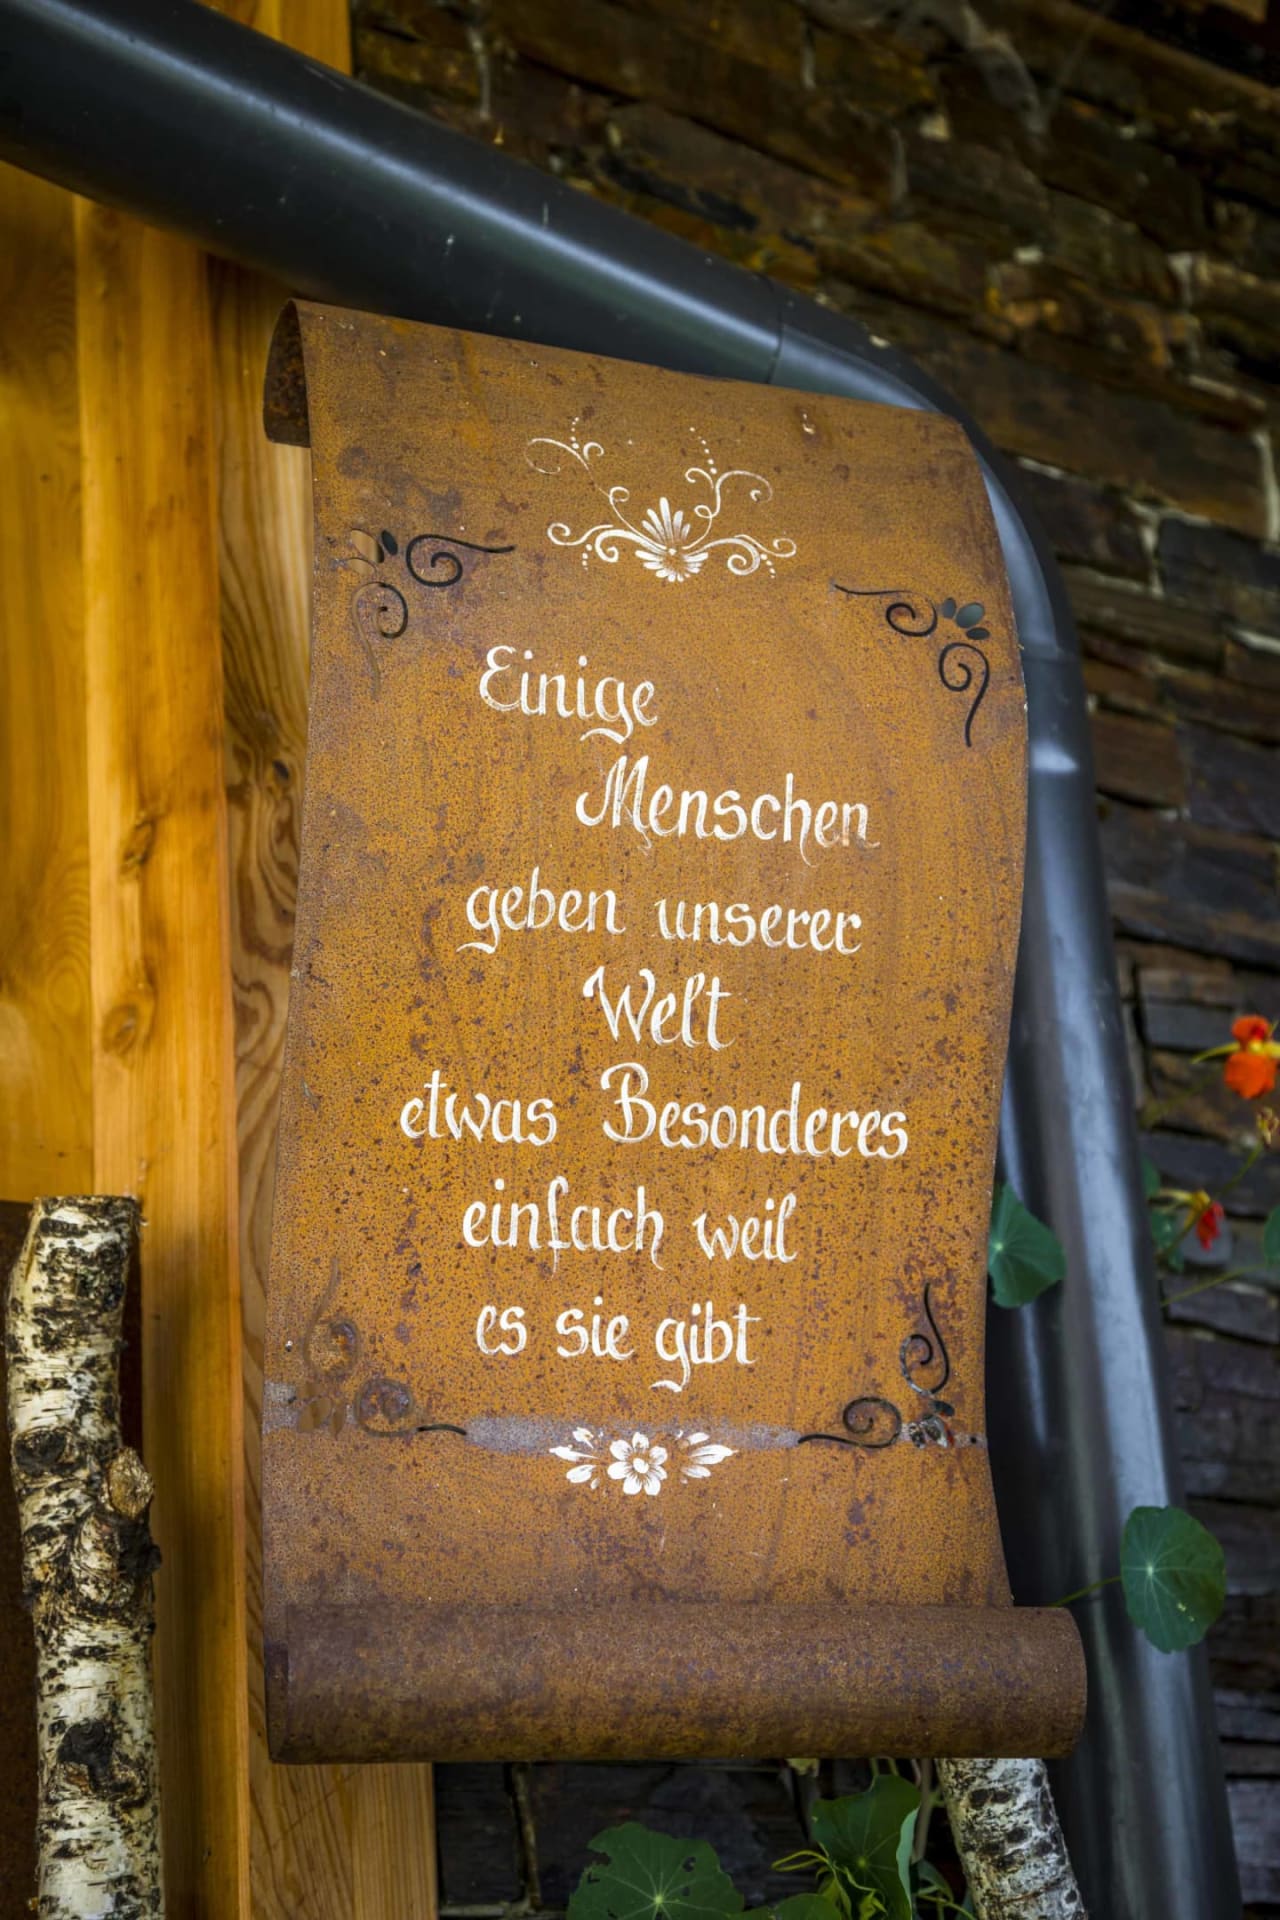 Einige
Menschen
geben unserer
Welt
etwas Besonderes
einfach weil
es sie gibt